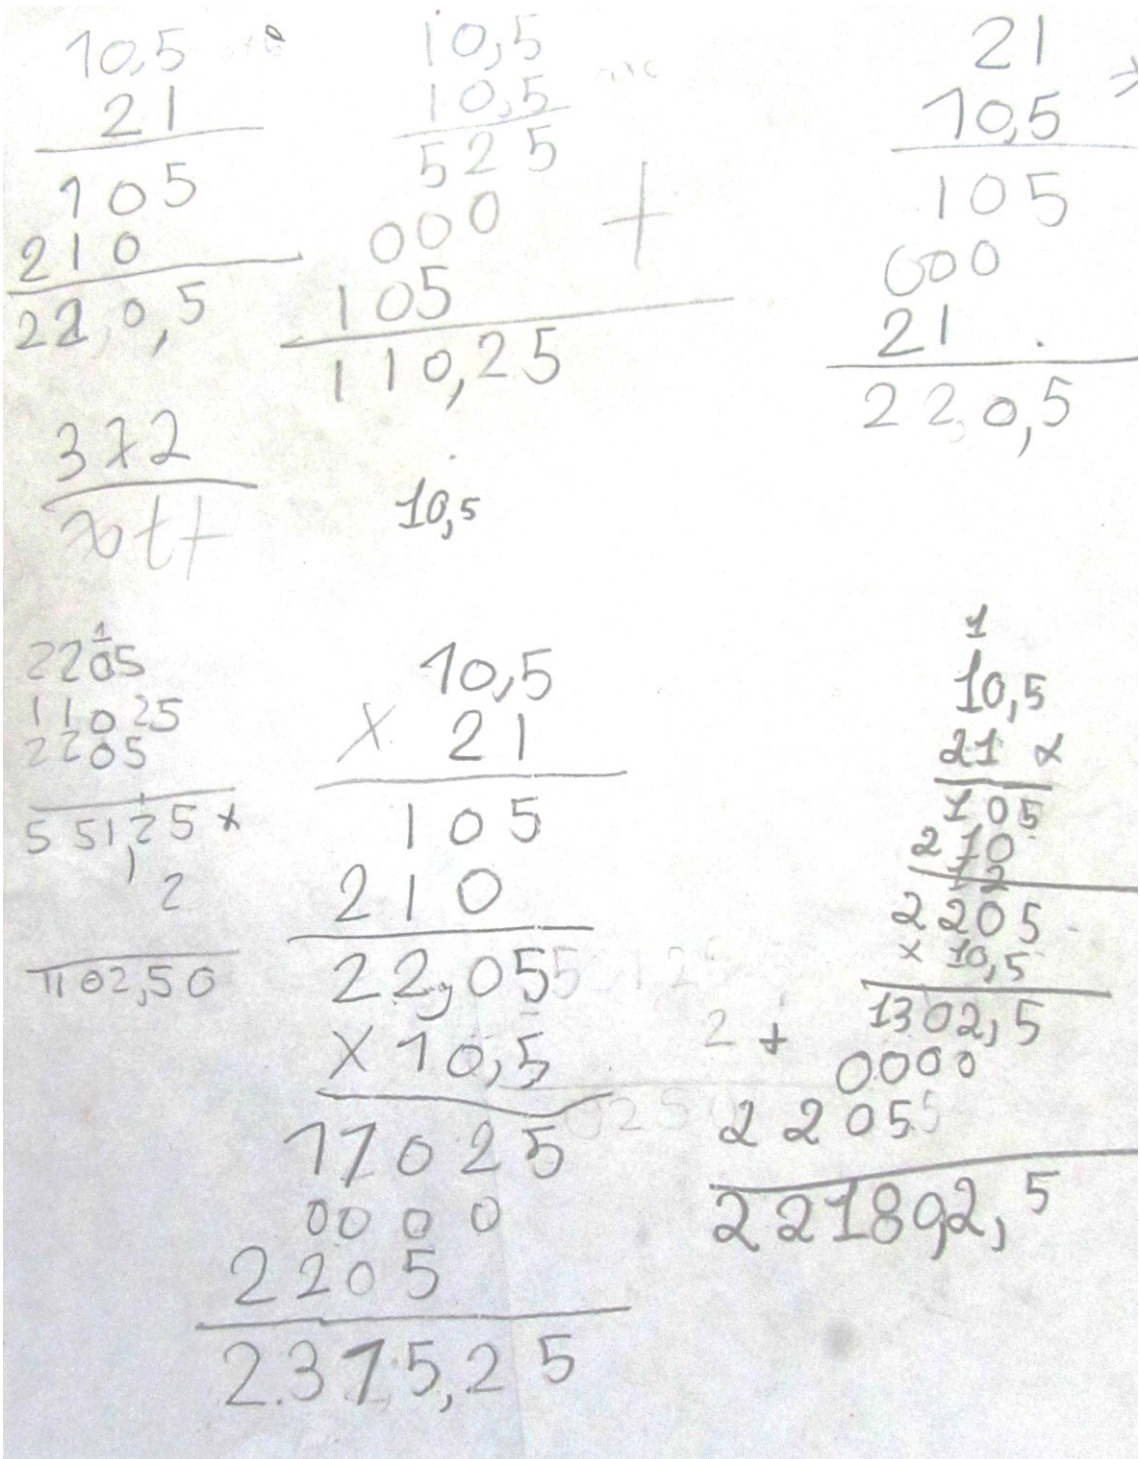 10,5
21
105
210
220,5
10,5
10,5
525
000
+
105
110,25
21
10,5
105
000
21 .
220,5
372
10,5
1
2205
11025
2205
+
551,25 x
2
1102,50
10,5
x 21
105
210
22,05
x 10,5
11025
0000
2205
2.315,25
1
10,5
21 x
105
210
2205
x 10,5
+ 1302,5
0000
2205
221892,5